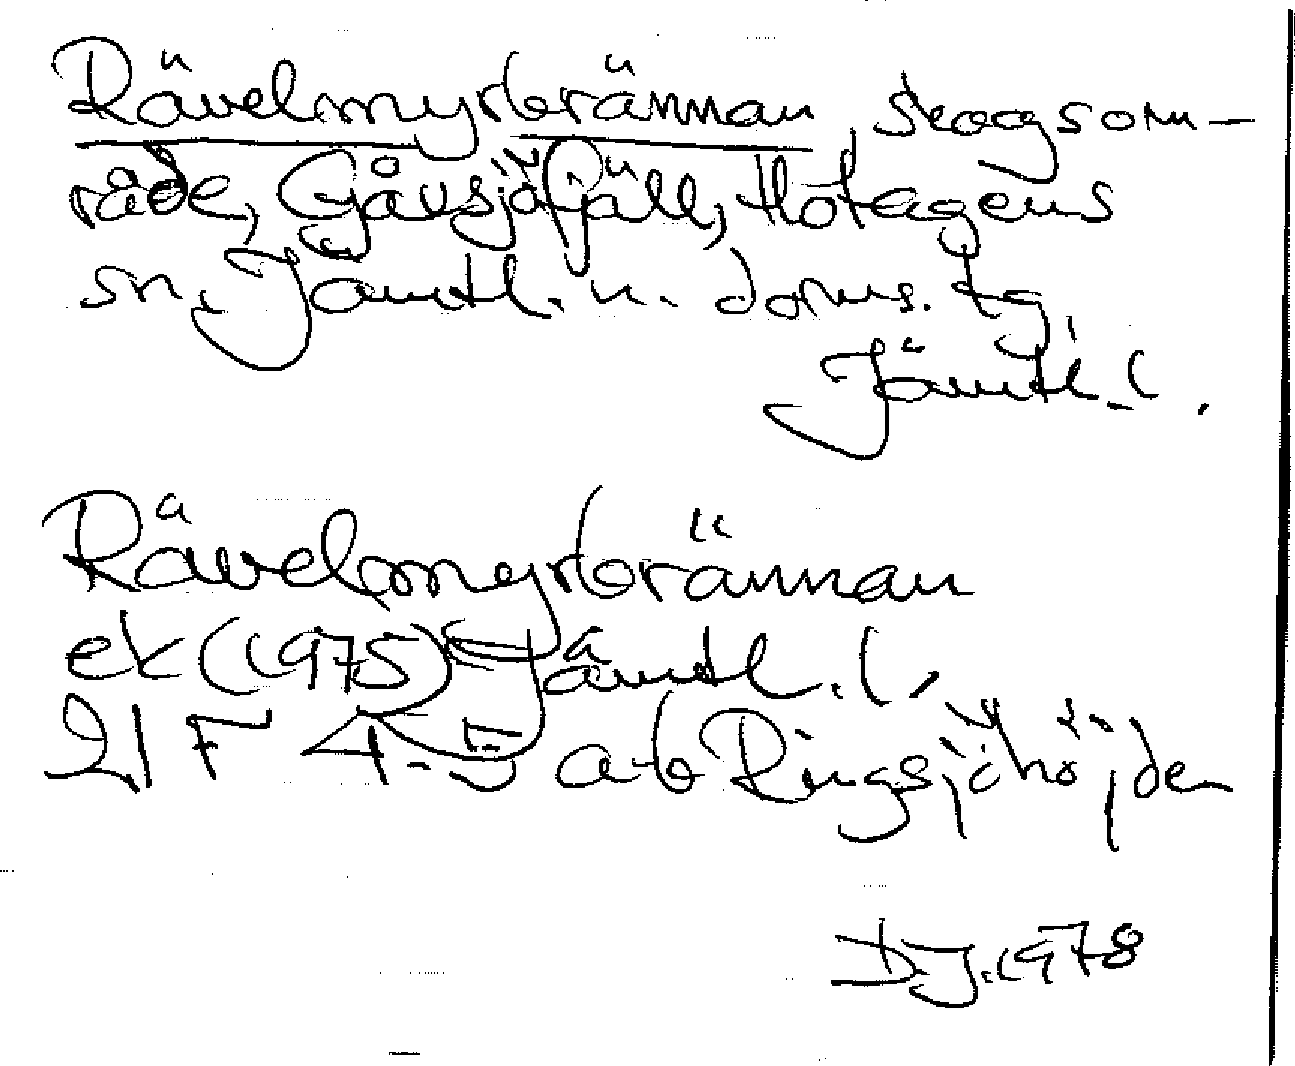 Rävelmyrbrännan, skogsom-
råde, Gåxsjöfjäll, Hotagens
sn, Jämtl. n. doms. tg,
Jämtl. l.
Rävelmyrbrännan
ek (1975) Jämtl. l.
21 F 4-5 a-b Ringsjöhöjden
D.J. 1978